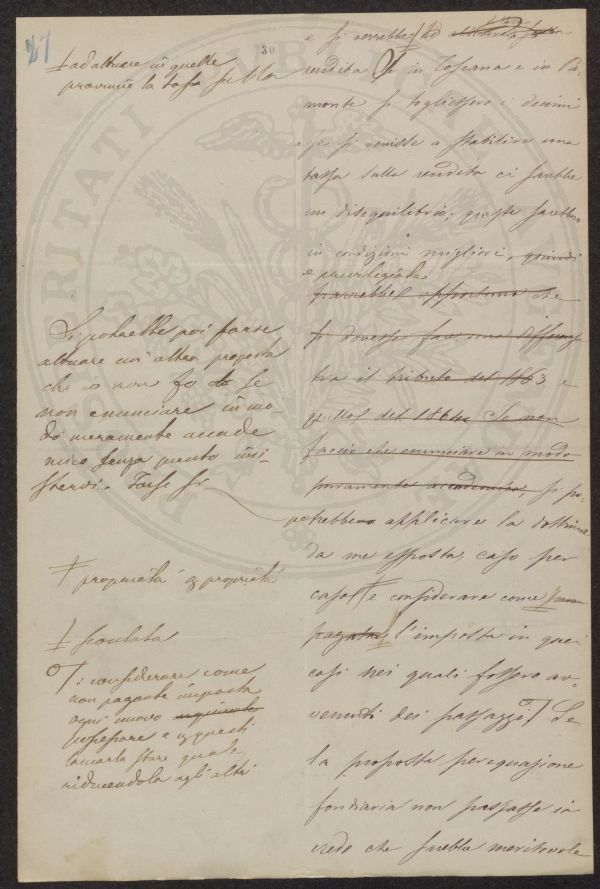 30
e si verrebbe ad
rendita Se in Toscana e in Pie-
monte si togliessero i decimi
e se si venisse a stabilire una
tassa sulla rendita ci sarebbe
un disequilibrio; queste sarebbero
in condizioni migliori, quindi
e privilegiate.
parrebbe opportuno che
si dovesse fare una differenza
tra il tributo del 1863 e
quello del 1864. Se non
faccio che enunciare in modo
puramente accademico, si po-
trebbero applicare la dottrina
da me esposta, caso per
caso e considerare come
pagata l'imposta in quei
casi nei quali fossero av-
venuti dei passaggi Se
la proposta perequazione
fondiaria non passasse io
credo che sarebbe meritevole
ad attuare in quelle
provincie la tassa sulla
Si potrebbe poi forse
attuare un'altra proposta
che io non fo se
non enunciare in mo
do meramente accade
mico senza punto insi-
stervi. Forse si
proprietà proprietà
scontata
considerare come
non pagante imposta
ogni nuovo
possessore e questi
lasciarla stare quale
riducendola agli altri